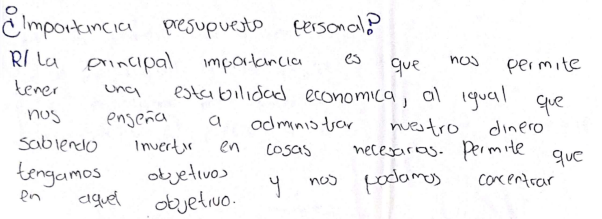 ¿Importancia presupuesto personal?
R/ La principal importancia es que nos permite
tener una estabilidad economica, al igual que
nos enseña a administrar nuestro dinero
sabiendo invertir en cosas necesarias. Permite que
tengamos objetivos y nos podamos concentrar
en aquel objetivo.